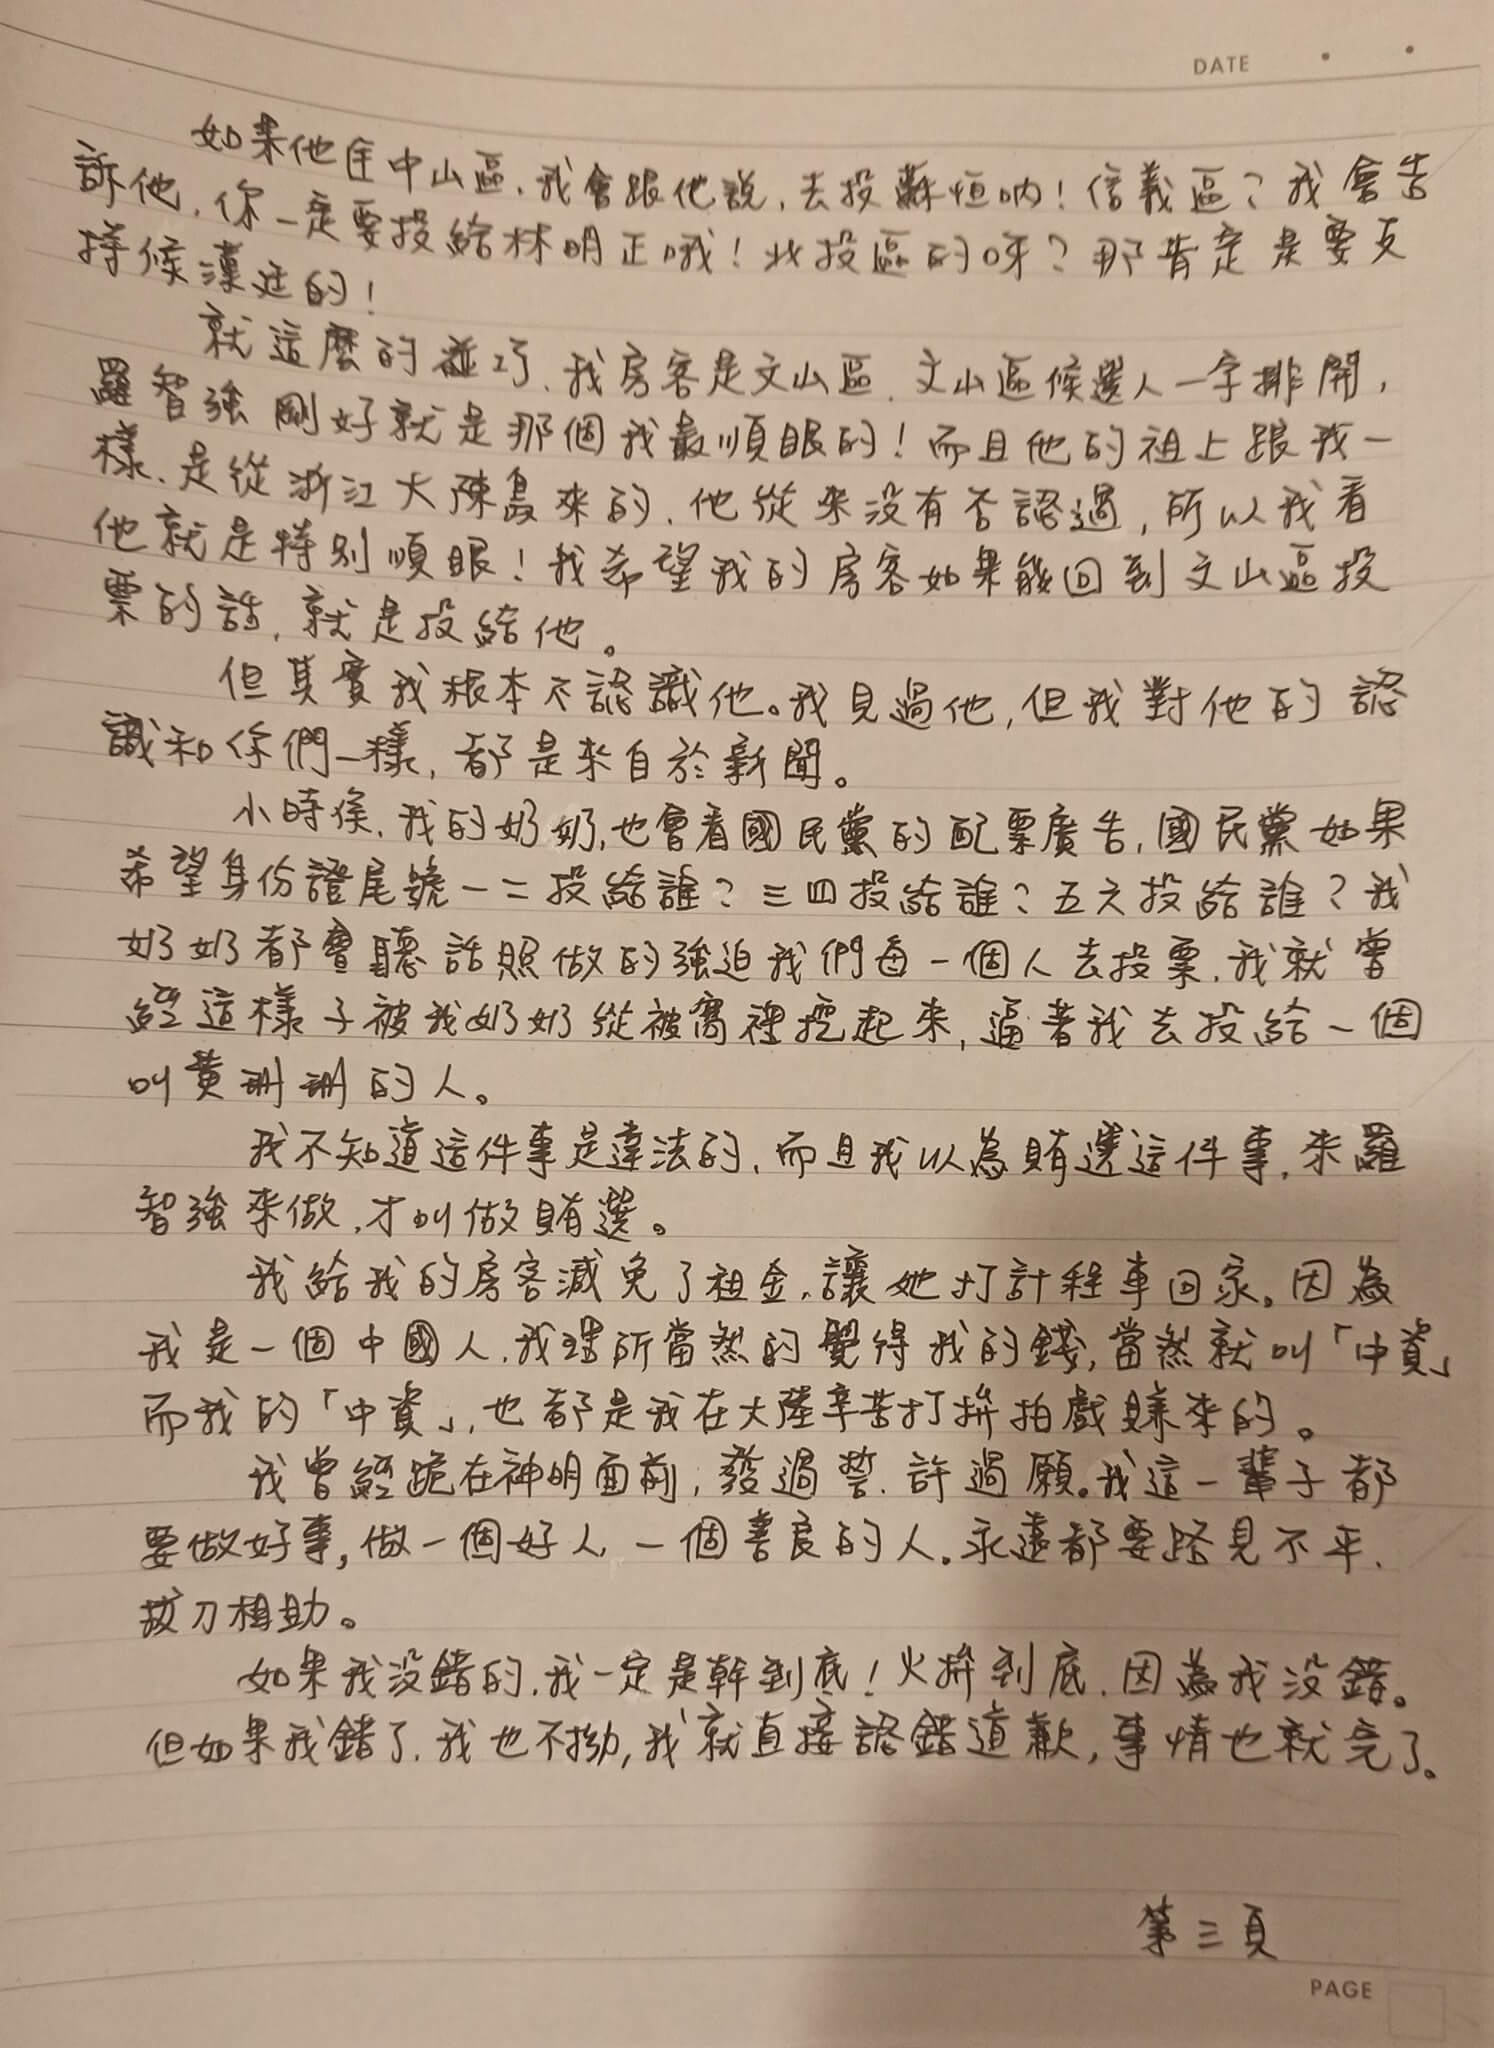 DATE
如果他住中山區,我會跟他說,去投蘇恒吶!信義區?我會告
訴他,你一定要投給林明正哦!北投區的呀?那肯定是要支
持侯漢廷的!
就這麼的碰巧,我房客是文山區,文山區候選人一字排開,
羅智強剛好就是那個我最順眼的!而且他的祖上跟我一
樣,是從浙江大陳島來的,他從來沒有否認過,所以我看
他就是特別順眼!我希望我的房客如果能回到文山區投
票的話,就是投給他。
但其實我根本不認識他。我見過他,但我對他的認
識和你們一樣,都是來自於新聞。
小時候,我的奶奶,也會看國民黨的配票廣告,國民黨如果
希望身份證尾號一二投給誰?三四投給誰?五六投給誰?我
奶奶都會聽話照做的強迫我們每一個人去投票,我就曾
經這樣子被我奶奶從被窩裡挖起來,逼著我去投給一個
叫黃珊珊的人。
我不知道這件事是違法的,而且我以為賄選這件事,來羅
智強來做,才叫做賄選。
我給我的房客減免了租金,讓她打計程車回家。因為
我是一個中國人,我理所當然的覺得我的錢,當然就叫「中資」
而我的「中資」,也都是我在大陸辛苦打拚拍戲賺來的。
我曾經跪在神明面前,發過誓,許過願。我這一輩子都
要做好事,做一個好人,一個善良的人。永遠都要路見不平,
拔刀相助。
如果我沒錯的,我一定是幹到底!火拚到底,因為我沒錯。
但如果我錯了,我也不拗,我就直接認錯道歉,事情也就完了。
第三頁
PAGE